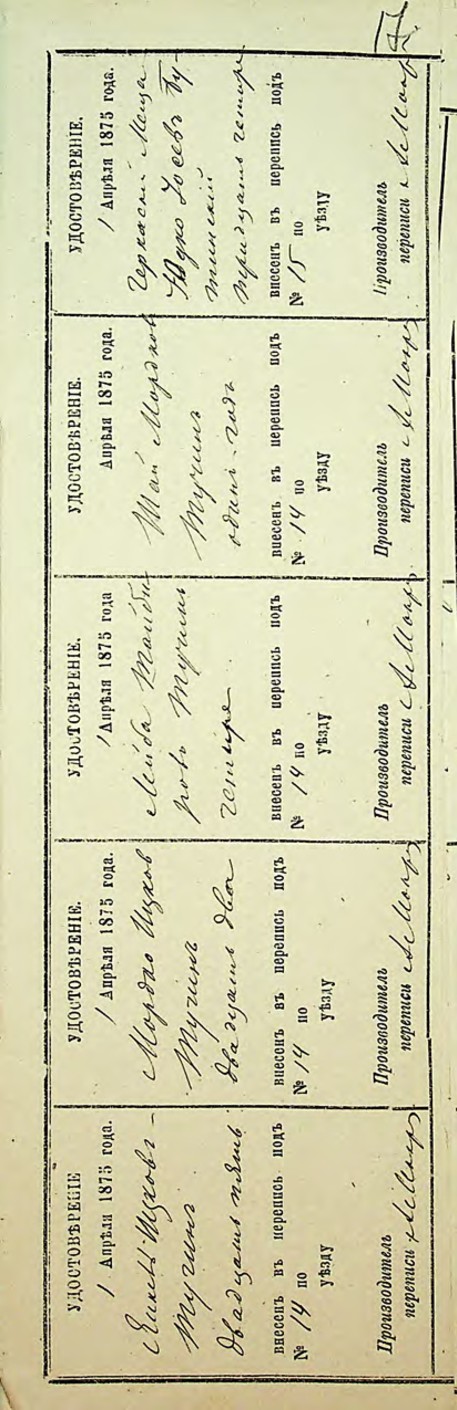 УДОСТОВѢРЕНІЕ
1 Апрѣля 1875 года.
Ицковъ
Тучинъ
двадцать пять
внесенъ въ перепись подъ
№ 14 по
уѣзду
Производитель
переписи
УДОСТОВѢРЕНІЕ.
1 Апрѣля 1875 года.
Мордко Ицков
Тучинъ
двадцать два
внесенъ въ перепись подъ
№ 14 по
уѣзду
Производитель
переписи
УДОСТОВѢРЕНІЕ.
1 Апрѣля 1875 года
Лейба
ровъ Тучинъ
четыре
внесенъ въ перепись подъ
№ 14 по
уѣзду
Производитель
переписи
УДОСТОВѢРЕНІЕ.
Апрѣля 1875 года.
Мордков
Тучинъ
одинъ годъ
внесенъ въ перепись подъ
№ 14 по
уѣзду
Производитель
переписи
УДОСТОВѢРЕНІЕ.
1 Апрѣля 1875 года.
Юдко Іосевъ Бу-
тинскій
тридцать четыре
внесенъ въ перепись подъ
№ 15 по
уѣзду
Производитель
переписи